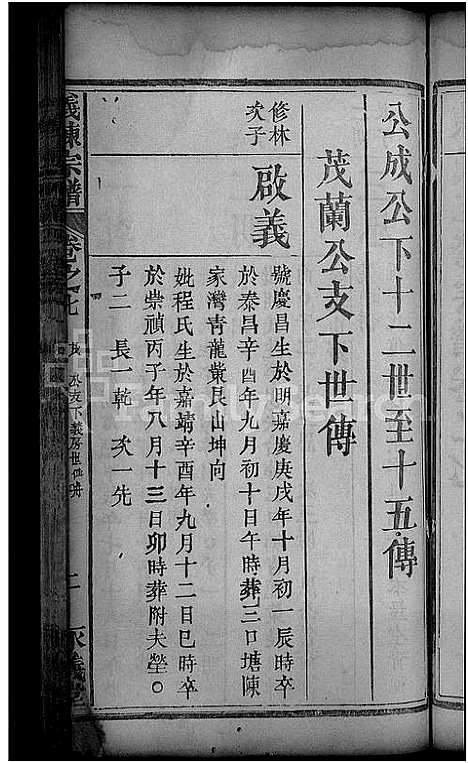 公成公下十二世至十五傳
茂蘭公支下世傳
修林
次子
啟義
號慶昌生於明嘉慶庚戌年十月初一辰時卒
於泰昌辛酉年九月初十日午時葬三口塘陳
家灣青龍嘴艮山坤向
妣程氏生於嘉靖辛酉年九月十二日巳時卒
於崇禎丙子年八月十三日卯時葬附夫塋〇
子二 長一乾 次一先
義陳宗譜
卷之七
公支下義房世傳
二
FamilySearch